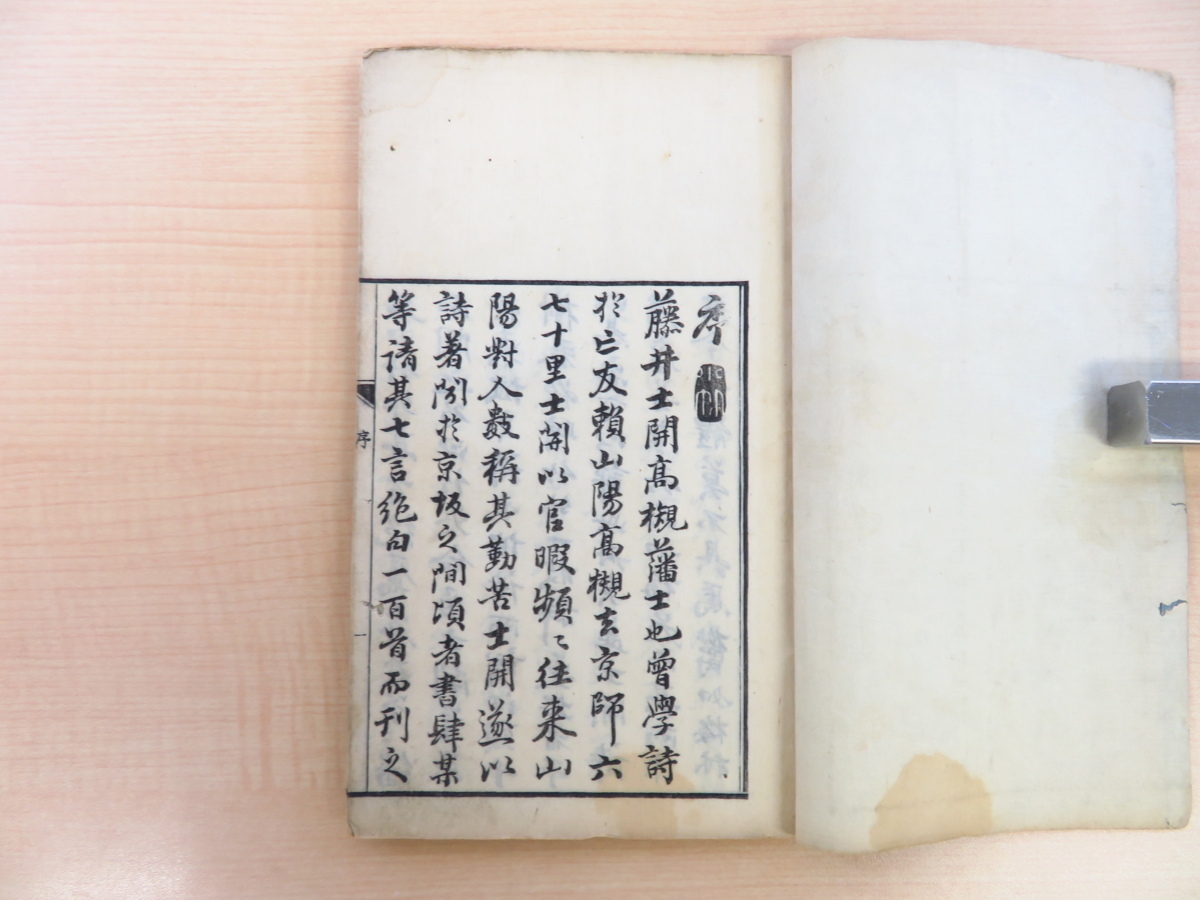 序
藤井士開高槻藩士也曾學詩
於亡友賴山陽高槻去京師六
七十里士開以官暇頻〻往來山
陽對人數稱其勤苦士開遂以
詩著聞於京坂之間頃者書肆某
等請其七言絶句一百首而刊之
序